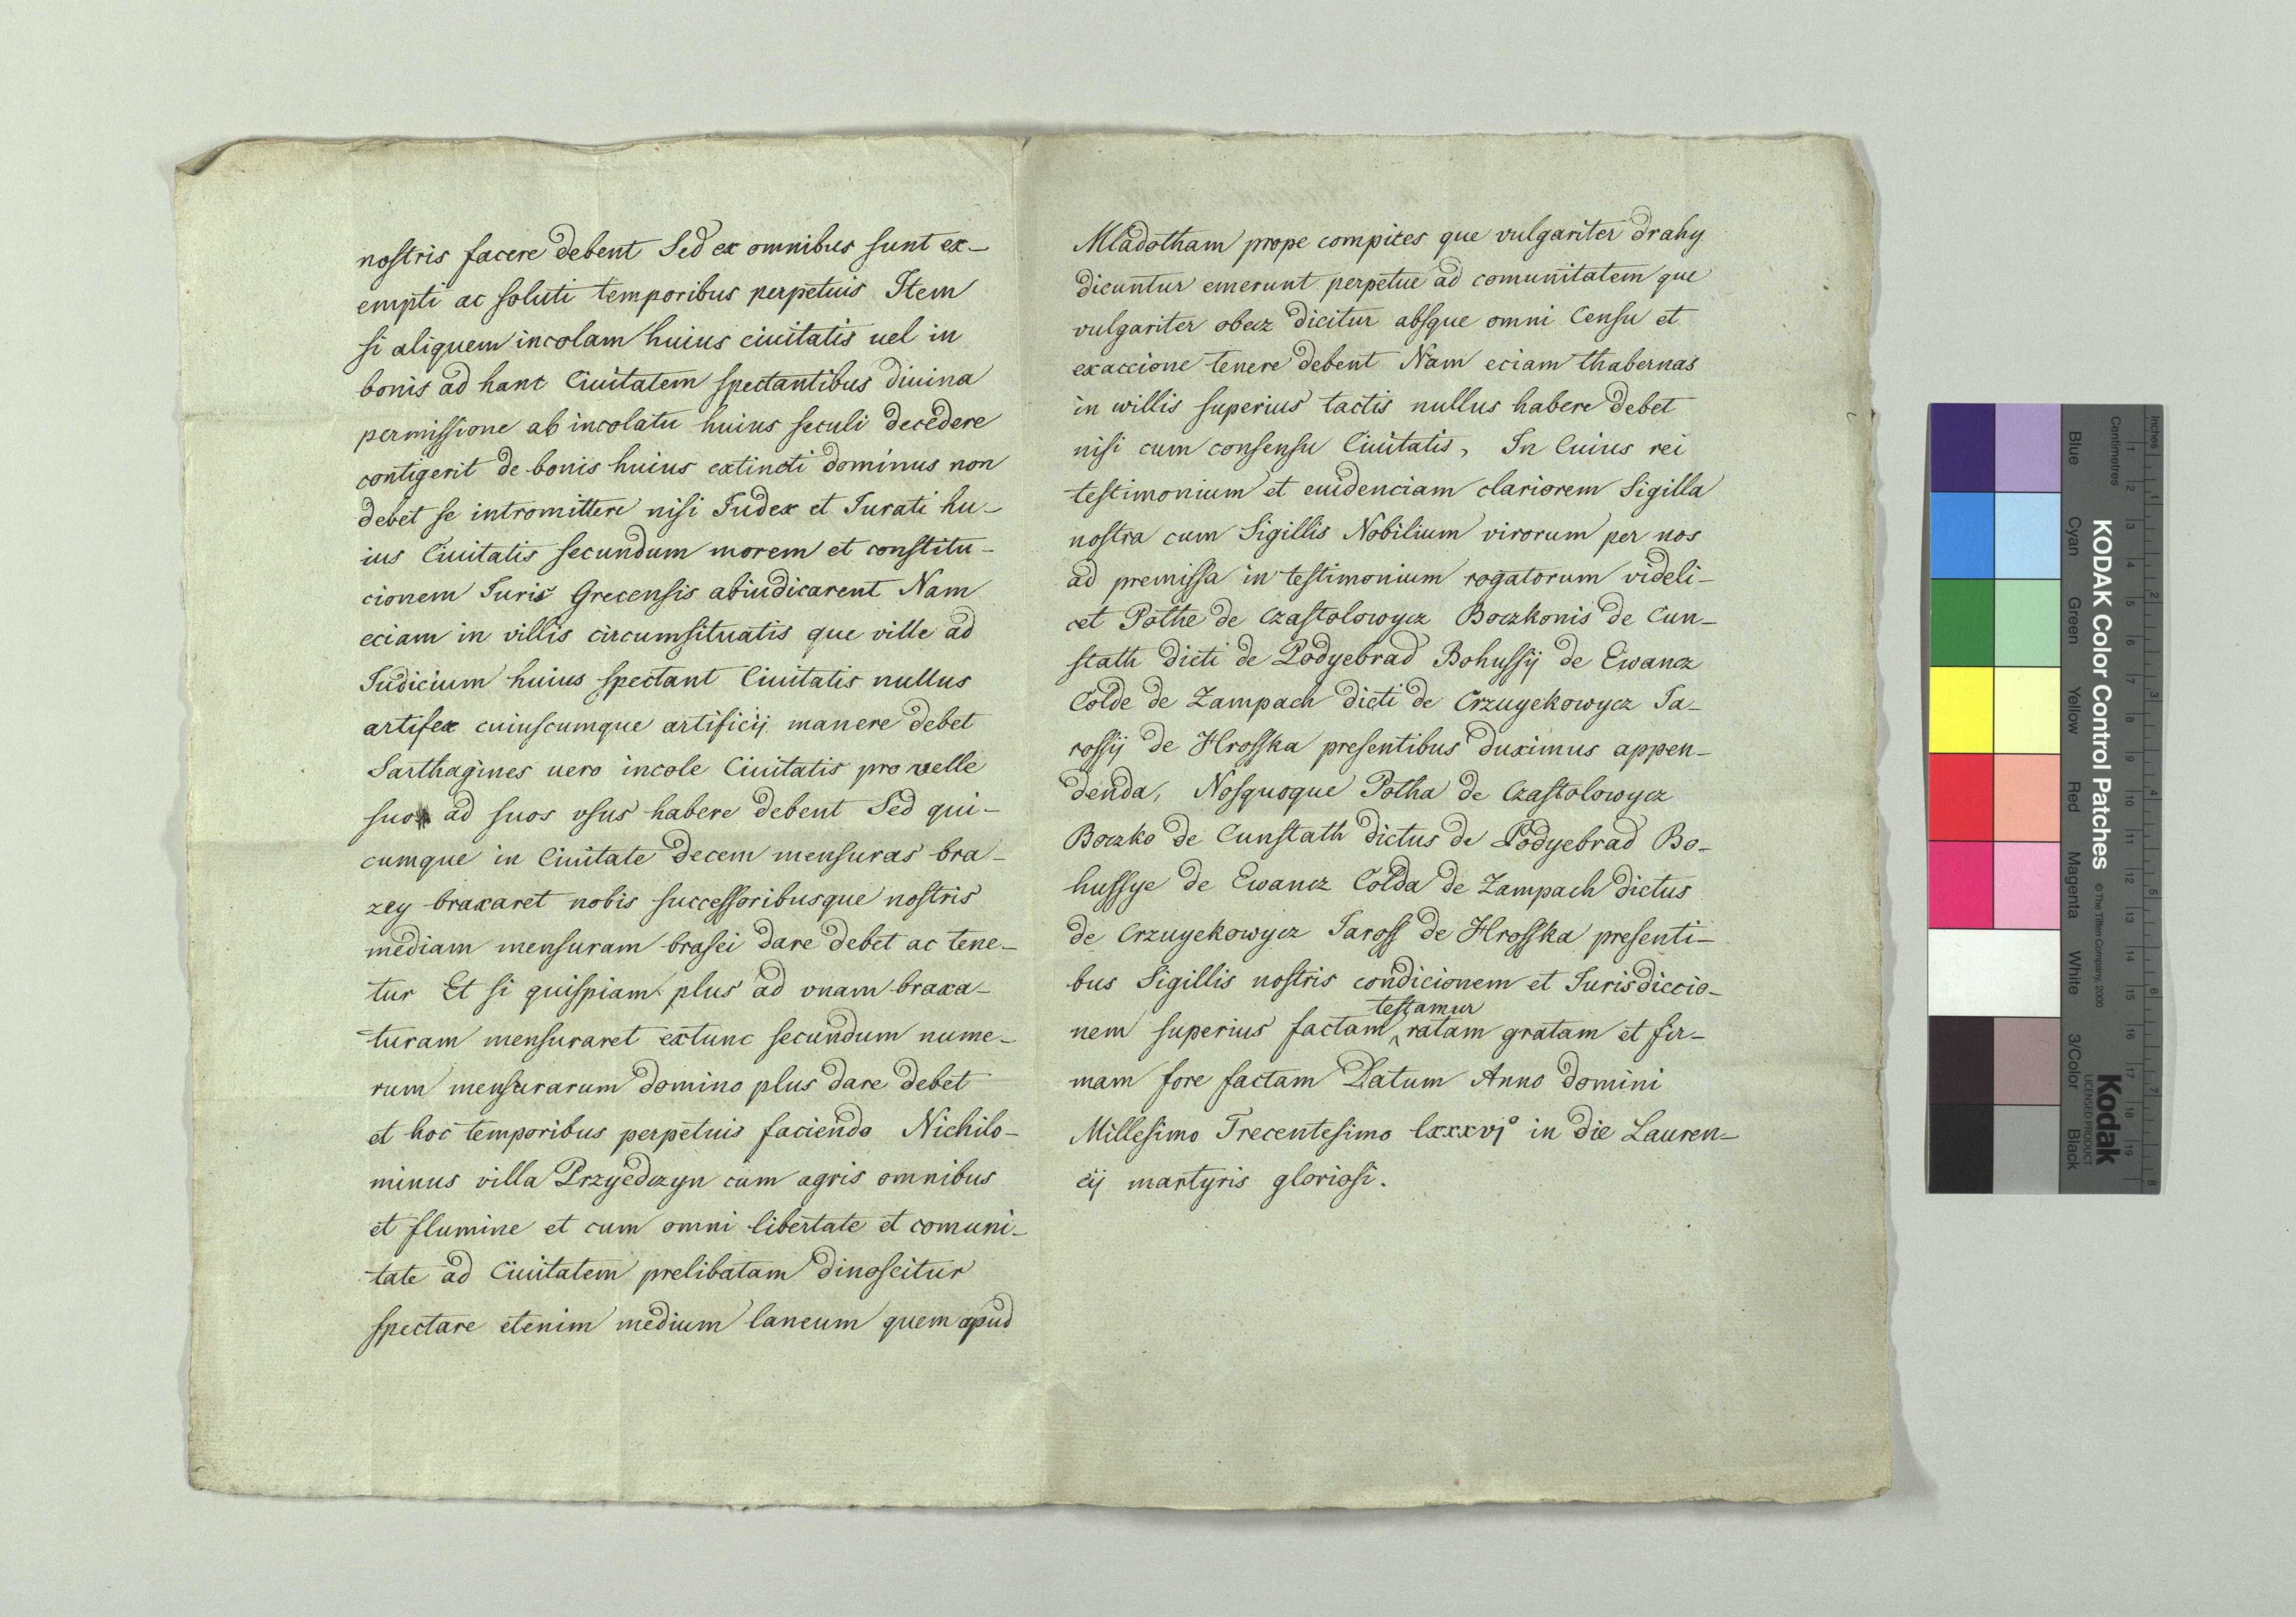 nostris facere debent Sed ex omnibus sunt ex-
empti ac soluti temporibus perpetuis Item
si aliquem incolam huius ciuitatis uel in
bonis ad hanc Ciuitatem spectantibus diuina
permissione ab incolatu huius seculi decedere
contigerit de bonis huius extincti dominus non
debet se intromittere nisi Judex et Jurati hu-
ius Ciuitatis secundum morem et constitu-
cionem Juris Grecensis abiudicarent Nam
eciam in villis circumsituatis que ville ad
Judicium huius spectant Ciuitatis nullus
artifex cuiuscumque artificij manere debet
Sarthagines uero incole Ciuitatis pro velle
suo ad suos vsus habere debent Sed qui-
cumque in Ciuitate decem mensuras bra-
zey braxaret nobis successoribusque nostris
mediam mensuram brasei dare debet ac tene-
tur Et si quispiam plus ad vnam braxa-
turam mensuraret extunc secundum nume-
rum mensurarum domino plus dare debet
et hoc temporibus perpetuis faciendo Nichilo-
minus villa Przyedczyn cum agris omnibus
et flumine et cum omni libertate et comuni-
tate ad Ciuitatem prelibatam dinoscitur
spectare etenim medium laneum quem apud
Mladotham prope compites que vulgariter drahy
dicuntur emerunt perpetue ad comunitatem que
vulgariter obecz dicitur absque omni Censu et
exaccione tenere debent Nam eciam thabernas
in willis superius tactis nullus habere debet
nisi cum consensu Ciuitatis, In Cuius rei
testimonium et euidenciam clariorem Sigilla
nostra cum Sigillis Nobilium virorum per nos
ad premissa in testimonium rogatorum videli-
cet Pothe de Czastolowycz Boczkonis de Cun-
stath dicti de Podyebrad Bohussij de Ewancz
Colde de Zampach dicti de Crzuyekowycz Ja-
rossij de Hrosska presentibus duximus appen-
denda, Nosquoque Potha de Czastolowycz
Boczko de Cunstath dictus de Podyebrad Bo-
hussye de Ewancz Colda de Zampach dictus
de Crzuyekowycz Jaross de Hrosska presenti-
bus Sigillis nostris condicionem et Jurisdiccio-
testamur
nem superius factam ratam gratam et fir-
mam fore factam Datum Anno domini
Millesimo Trecentesimo lxxxvjo in die Lauren-
cij martyris gloriosi.
KODAK Color Control Patches © The Tiffen Company, 2000
Kodak
LICENSED PRODUCT
Inches 1 2 3 4 5 6 7 8
Centimetres 1 2 3 4 5 6 7 8 9 10 11 12 13 14 15 16 17 18 19
Blue Cyan Green Yellow Red Magenta White 3/Color Black